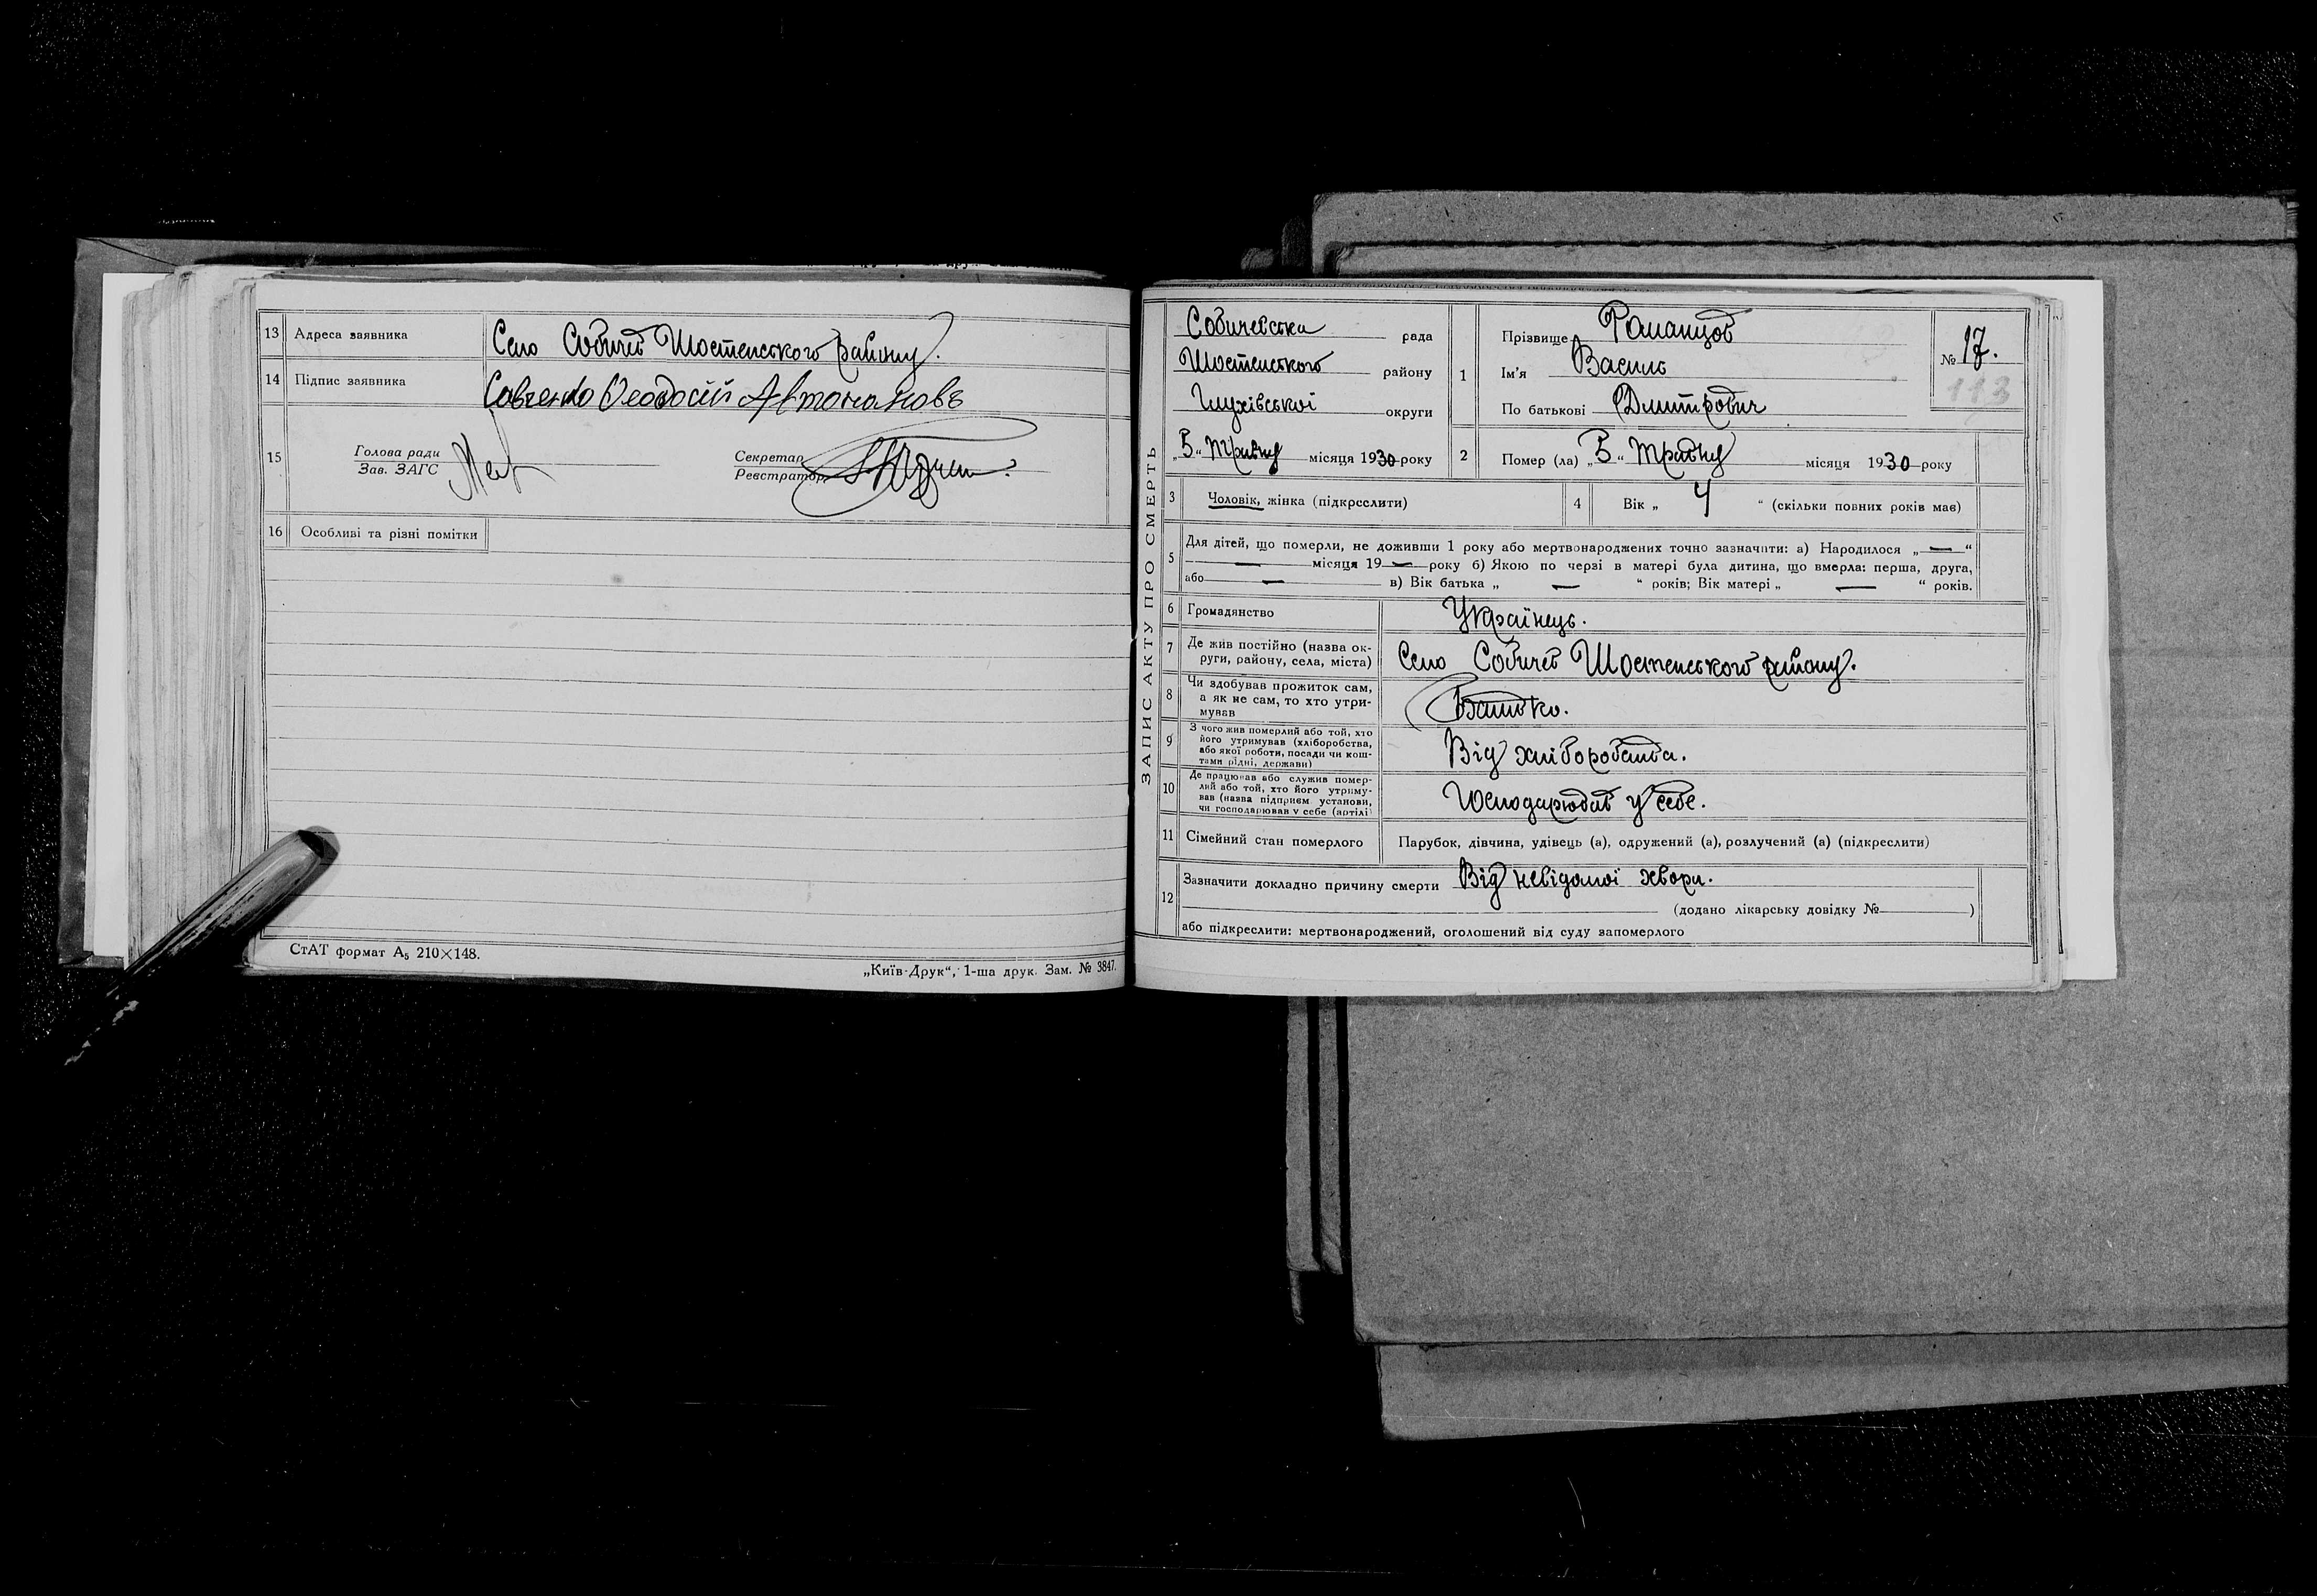 13 Адреса заявника Село Собичев Шостенського району.
14 Підпис заявника Савченко Феодосій Автономовъ
15 Голова ради
Зав. ЗАГС
Секретар
Реєстратор
16 Особливі та різні помітки
СтАТ формат А5 210×148.
„Київ-Друк“, 1-ша друк. Зам. № 3847.
ЗАПИС АКТУ ПРО СМЕРТЬ
Собичевська рада
Шостенського району
Глухівської округи
„5“ травня місяця 1930 року
1 Прізвище Романцов
Ім'я Василь
По батькові Дмитрович
№ 17.
113
2 Помер (ла) „5“ травня місяця 1930 року
3 Чоловік, жінка (підкреслити)
4 Вік „ 4 “ (скільки повних років має)
5 Для дітей, що померли, не доживши 1 року або мертвонароджених точно зазначити: а) Народилося „—“
— місяця 19— року б) Якою по черзі в матері була дитина, що вмерла: перша, друга,
або — в) Вік батька „ — “ років; Вік матері „ — “ років.
6 Громадянство Українець.
7 Де жив постійно (назва ок-
руги, району, села, міста) Село Собичев Шостенського району.
8 Чи здобував прожиток сам,
а як не сам, то хто утри-
мував Батько.
9 З чого жив померлий або той, хто
його утримував (хліборобства,
або якої роботи, посади чи кош-
тами рідні, держави) Від хліборобства.
10 Де працював або служив помер-
лий або той, хто його утриму-
вав (назва підприєм. установи,
чи господарював у себе (артілі) Господарював у себе.
11 Сімейний стан померлого Парубок, дівчина, удівець (а), одружений (а), розлучений (а) (підкреслити)
12 Зазначити докладно причину смерти Від невідомої хвори.
(додано лікарську довідку № )
або підкреслити: мертвонароджений, оголошений від суду запомерлого